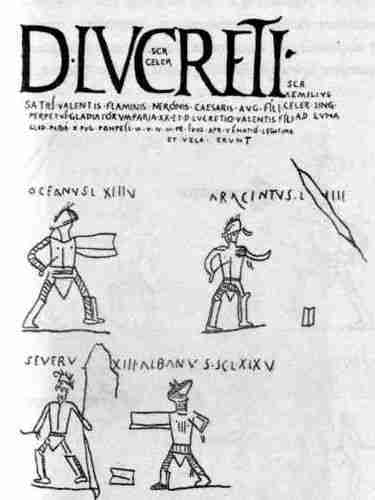 D·LVCRETI·
SCR
CELER
SCR
AEMILIVS
SATRI·VALENTIS·FLAMINIS·NERONIS·CAESARIS·AVG·FILI CELER SING
PERPETVI GLADIATORVM PARIA XX·ET·D·LVCRETIO VALENTIS FILI AD LVNA
X PVG·POMPEIS APR·VENATIO·LEGITIMA
ET VELA ERVNT
OCEANVS·L XIIIV ARACINTVS·L IIII
SEVERV XIII·ALBANVS·SCLXIXV